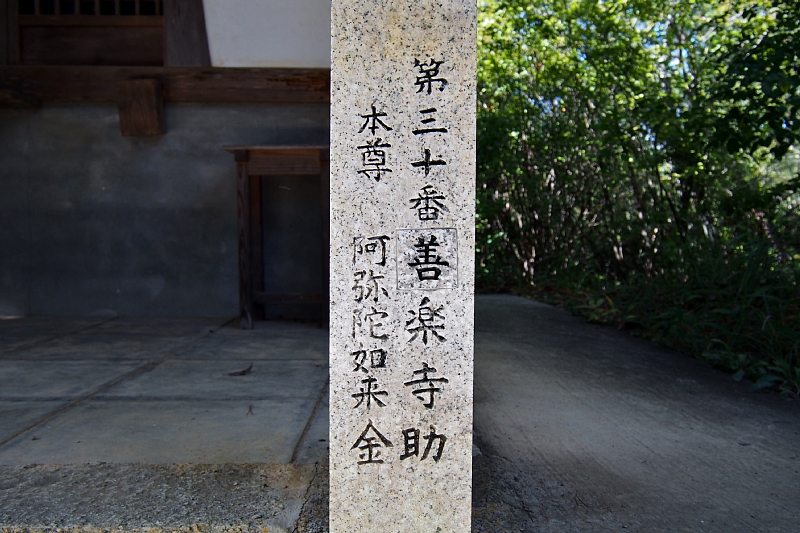 第三十番善楽寺助
本尊 阿弥陀如来 金